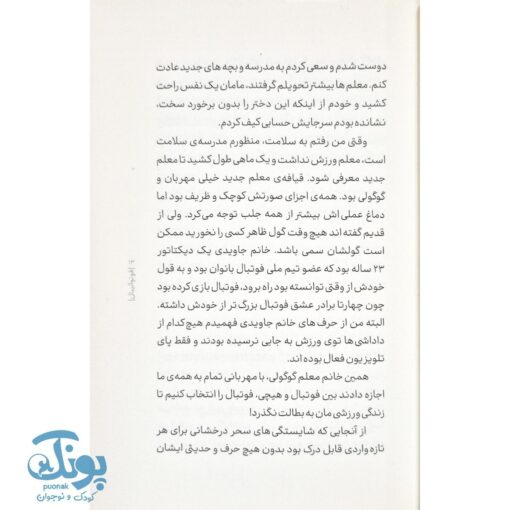 دوست شدم و سعی کردم به مدرسه و بچه های جدید عادت
کنم. معلم ها بیشتر تحویلم گرفتند، مامان یک نفس راحت
کشید و خودم از اینکه این دختر را بدون برخورد سخت،
نشانده بودم سرجایش حسابی کیف کردم.
وقتی من رفتم به سلامت، منظورم مدرسه‌ی سلامت
است، معلم ورزش نداشت و یک ماهی طول کشید تا معلم
جدید معرفی شود. قیافه‌ی معلم جدید خیلی مهربان و
گوگولی بود. همه‌ی اجزای صورتش کوچک و ظریف بود اما
دماغ عملی اش بیشتر از همه جلب توجه می‌کرد. ولی از
قدیم گفته اند هیچ وقت گول ظاهر کسی را نخورید ممکن
است گولشان سمی باشد. خانم جاویدی یک دیکتاتور
۲۳ ساله بود که عضو تیم ملی فوتبال بانوان بود و به قول
خودش از وقتی توانسته بود راه برود، فوتبال بازی کرده بود
چون چهارتا برادر عشق فوتبال بزرگ تر از خودش داشته.
البته من از حرف های خانم جاویدی فهمیدم هیچ کدام از
داداشی ها توی ورزش به جایی نرسیده بودند و فقط پای
تلویزیون فعال بوده اند.
همین خانم معلم گوگولی، با مهربانی تمام به همه‌ی ما
اجازه دادند بین فوتبال و هیچی، فوتبال را انتخاب کنیم تا
زندگی ورزشی مان به بطالت نگذرد!
از آنجایی که شایستگی های سحر درخشانی برای هر
تازه واردی قابل درک بود بدون هیچ حرف و حدیثی ایشان
پونک
puonak
کودک و نوجوان